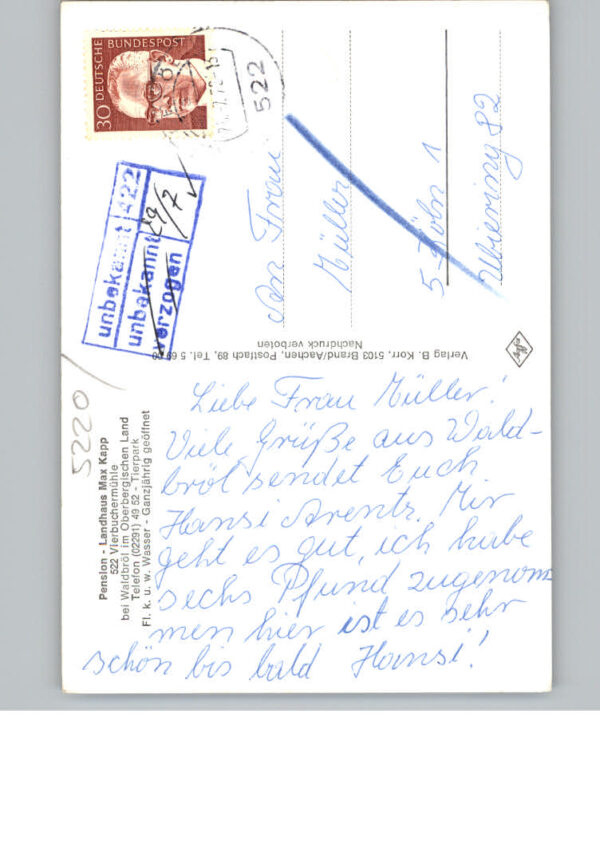 Pension - Landhaus Max Kapp
522 Vierbuchermühle
bei Waldbröl im Oberbergischen Land
Telefon (02291) 49 52 - Tierpark
Fl. k. u. w. Wasser - Ganzjährig geöffnet
5220
Liebe Frau Müller!
Viele Grüße aus Wald-
bröl sendet Euch
Hansi Arentz. Mir
geht es gut, ich habe
sechs Pfund zugenom
men hier ist es sehr
schön bis bald Hansi!
Verlag B. Korr, 5103 Brand/Aachen, Postfach 89, Tel. 5 69
Nachdruck verboten
unbekannt 422
unbekannt 29/7
verzogen
DEUTSCHE BUNDESPOST
30
522
An Frau
Müller
5 Köln 1
Ubierring 82
Agfa